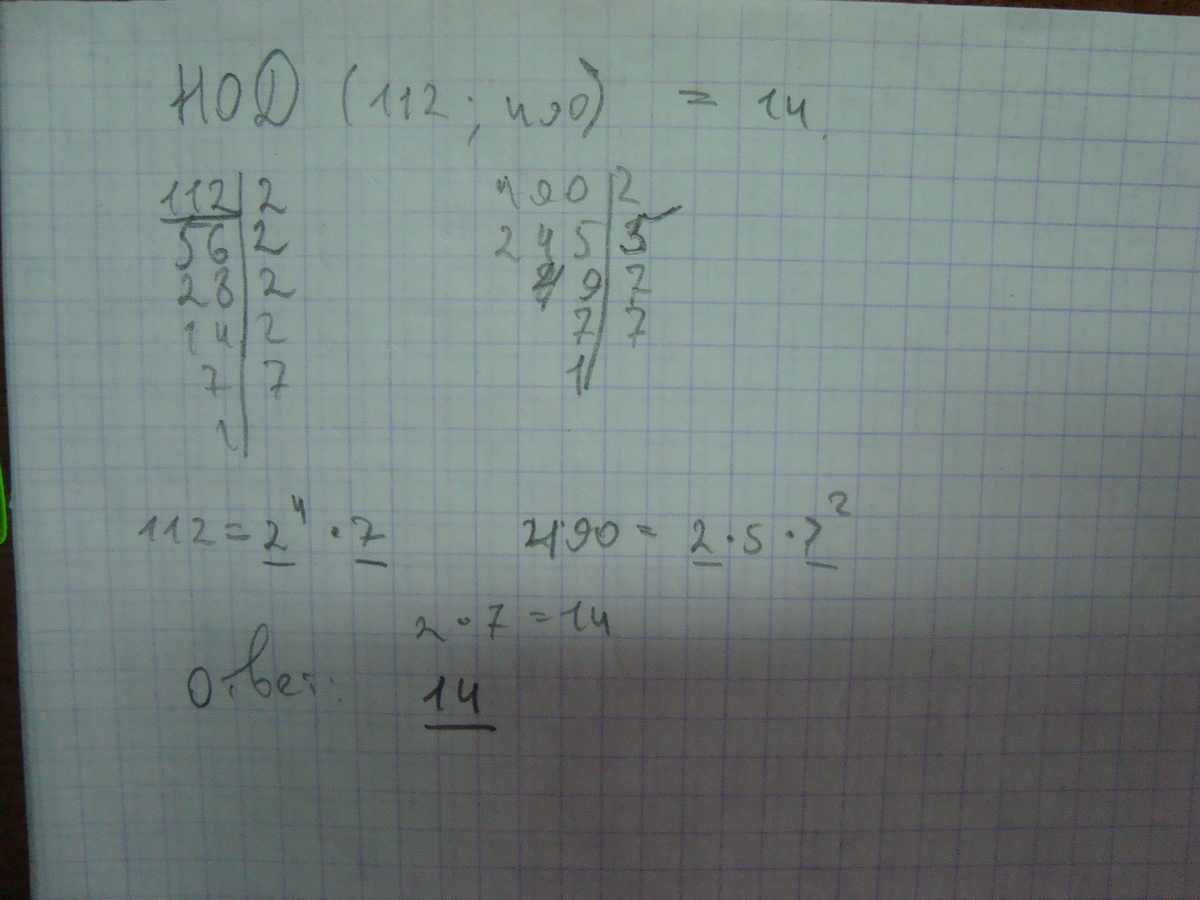 НОД (112; 490) = 14
112 | 2 490 | 2
56 | 2 245 | 5
28 | 2 49 | 7
14 | 2 7 | 7
7 | 7 1
1
112 = 2⁴ · 7 490 = 2 · 5 · 7²
2 · 7 = 14
Ответ: 14